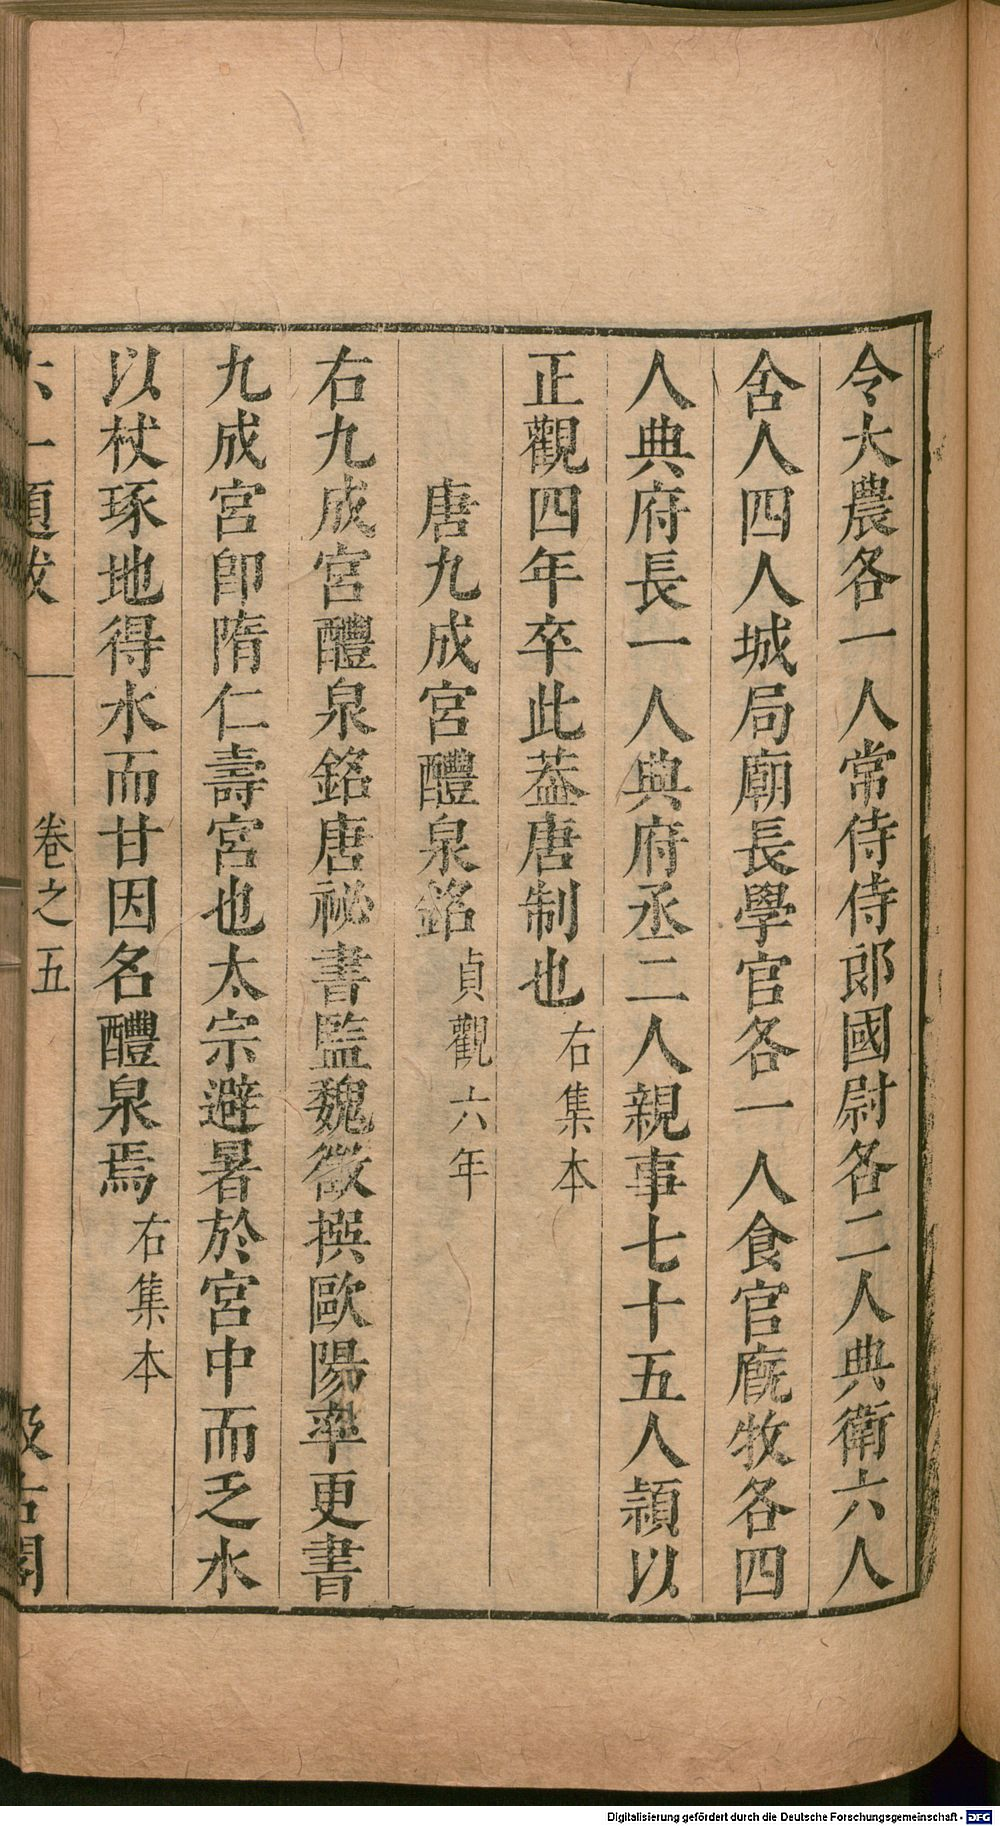 令大農各一人常侍侍郎國尉各二人典衛六人
舍人四人城局廟長學官各一人食官廐牧各四
人典府長一人典府丞二人親事七十五人頴以
正觀四年卒此葢唐制也右集本
唐九成宮醴泉銘貞觀六年
右九成宮醴泉銘唐祕書監魏徵撰歐陽率更書
九成宮即隋仁壽宮也太宗避暑於宮中而乏水
以杖琢地得水而甘因名醴泉焉右集本
六一題跋 卷之五 汲古閣
Digitalisierung gefördert durch die Deutsche Forschungsgemeinschaft - DFG